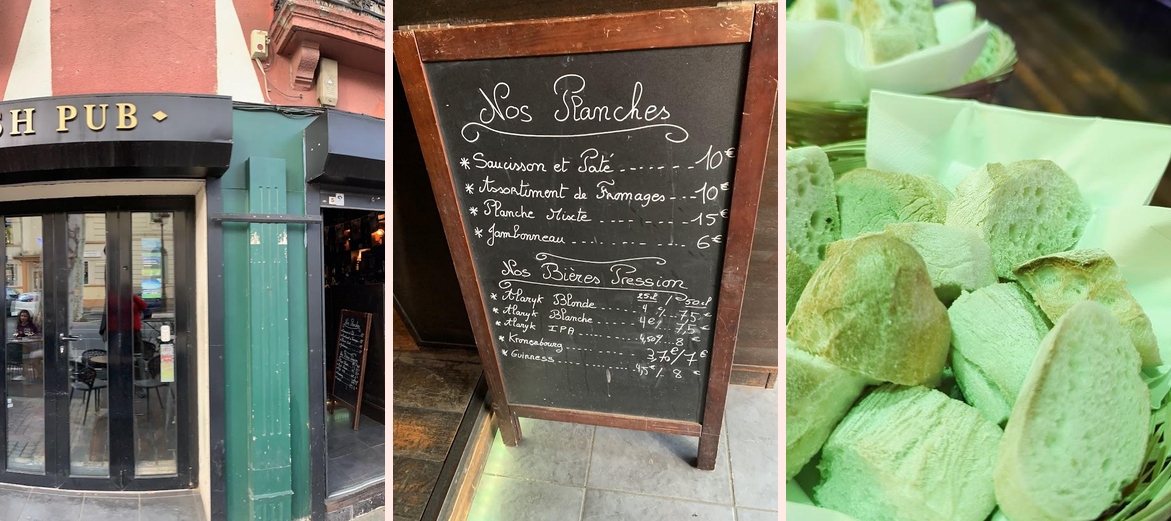 SH PUB
Nos Planches
* Saucisson et Paté ------ 10€
* Assortiment de Fromages --- 10€
* Planche Mixte ---------- 15€
* Jambonneau ---------- 6€
Nos Bières Pression
25cl / 50cl
* Alaryk Blonde 4 €/ 7,5 €
* Alaryk Blanche 4€/ 7,5 €
* Alaryk IPA 4,50€/ 8 €
* Kronenbourg 3,70€/7 €
* Guinness 4,5€/ 8 €